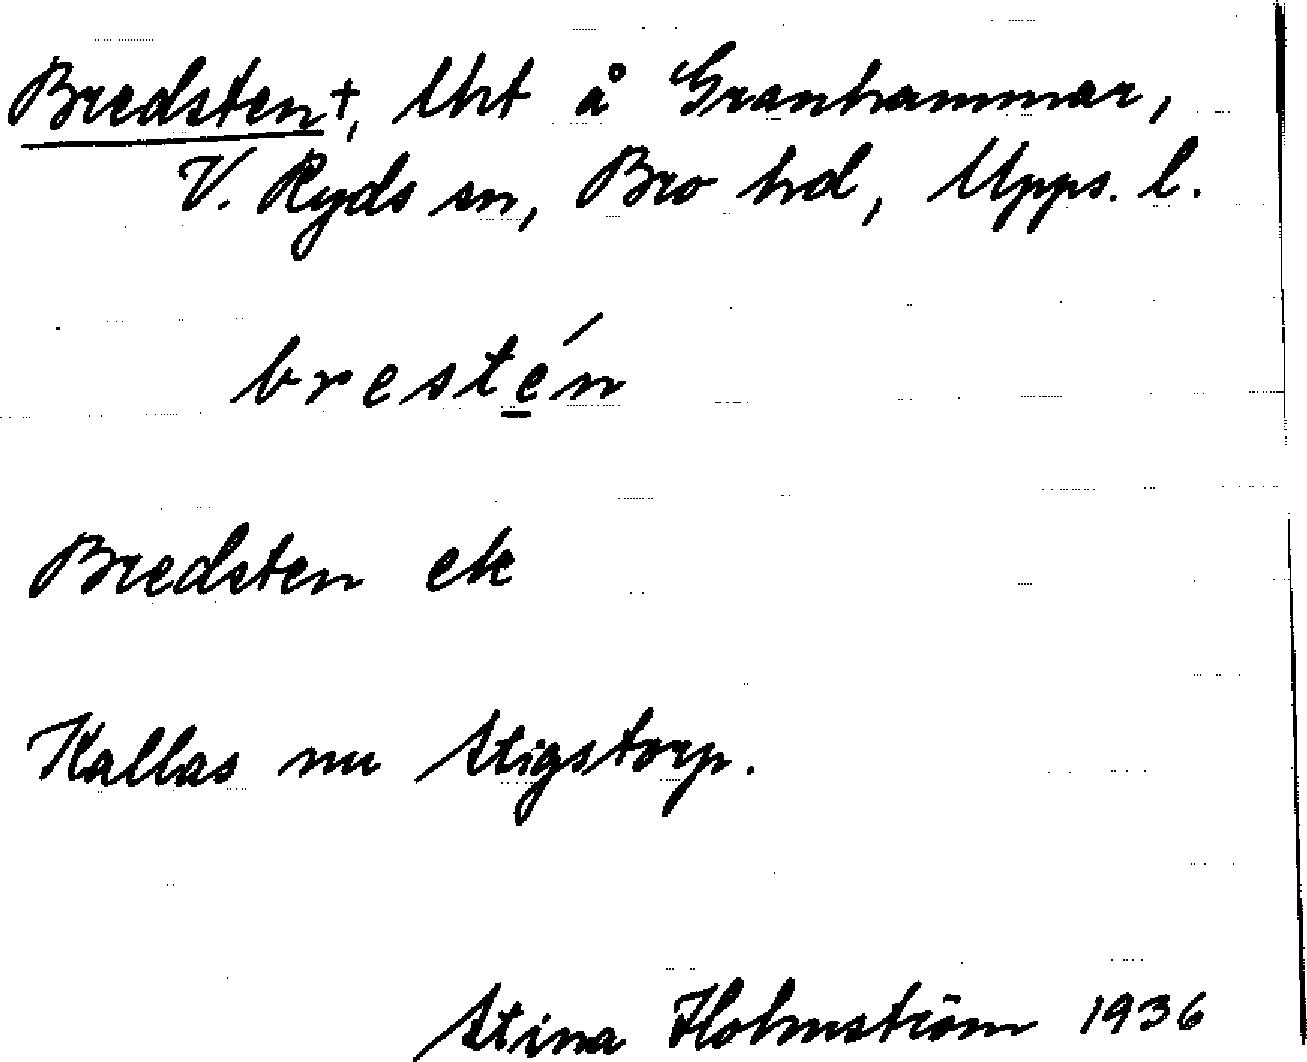 Bredsten†, lht å Granhammar,
V. Ryds sn, Bro hd, Upps. l.
bresté̲n
Bredsten ek
Kallas nu Stigstorp.
Stina Holmström 1936